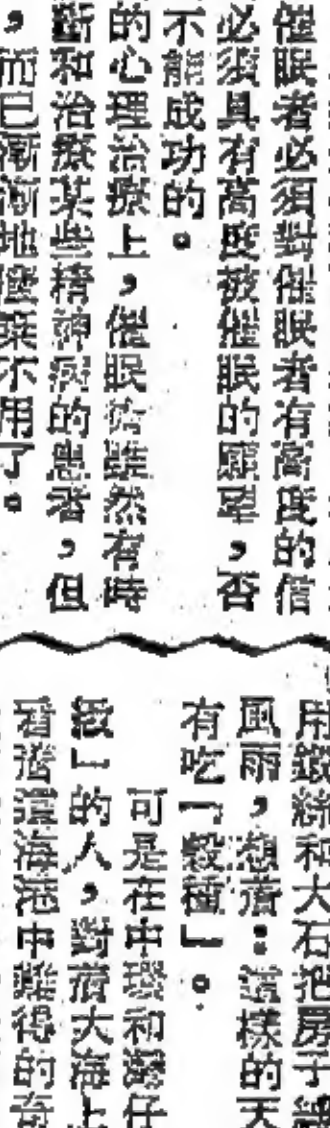 催眠者必須對催眠者有高度的信
必須具有高度被催眠的願望，否
不能成功的。
的心理治療上，催眠術雖然有時
斷和治療某些精神病的患者，但
，而已漸漸地廢棄不用了。
用鐵絲和大石把房子
風雨，想着：這樣的天
有吃「穀種」。
可是在中環和灣仔
級」的人，對着大海上
看着這海港中難得的奇